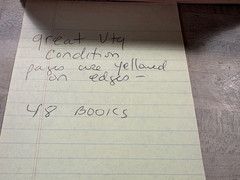 great Vtg
Condition
pages are yellowed
on edges -
48 BOOKS